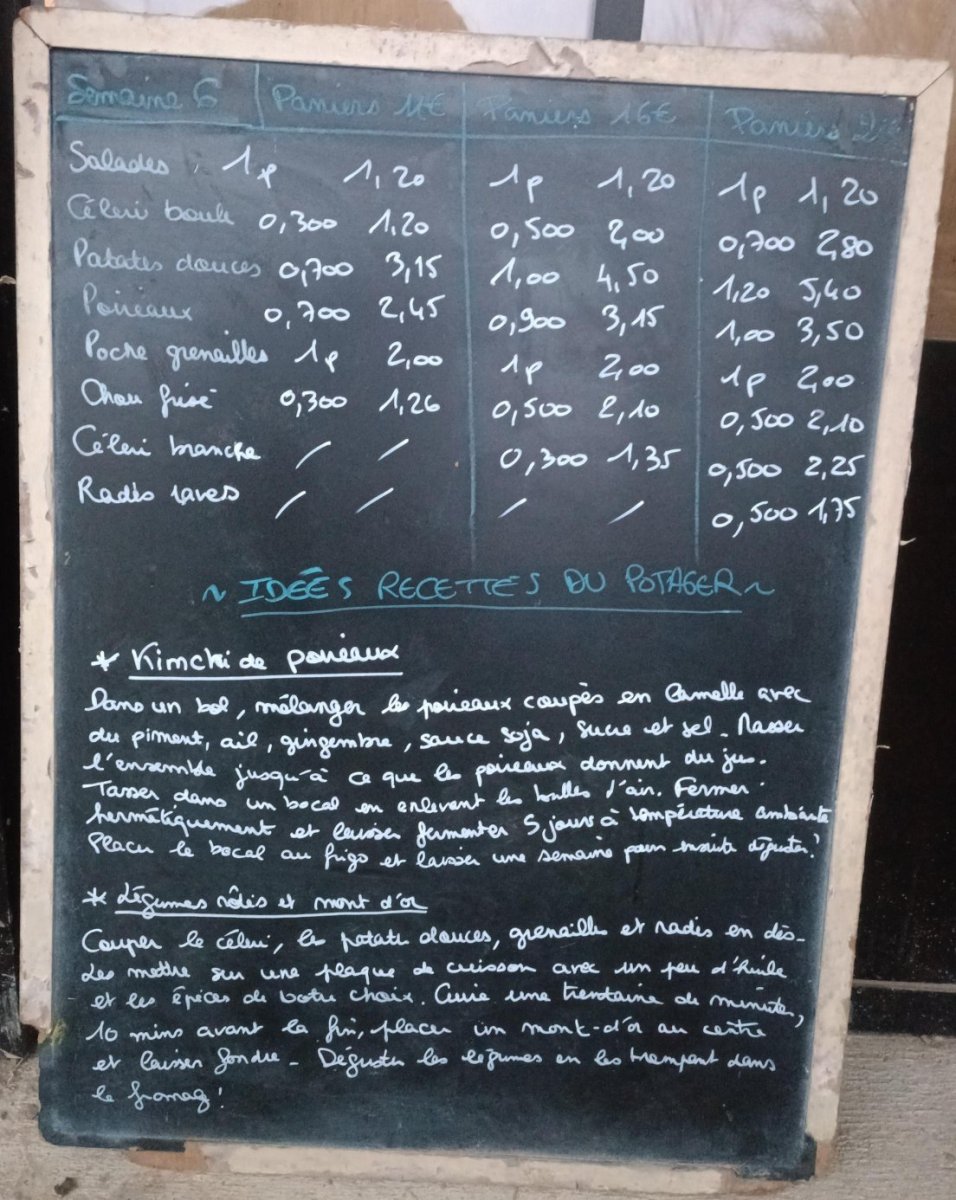 Semaine 6 Paniers 11€ Paniers 16€ Paniers 2
Salades 1p 1,20 1p 1,20 1p 1,20
Céleri boule 0,300 1,20 0,500 2,00 0,700 2,80
Patates douces 0,700 3,15 1,00 4,50 1,20 5,40
Poireaux 0,700 2,45 0,900 3,15 1,00 3,50
Poche grenailles 1p 2,00 1p 2,00 1p 2,00
Chou frisé 0,300 1,26 0,500 2,10 0,500 2,10
Céleri branche / / 0,300 1,35 0,500 2,25
Radis raves / / / / 0,500 1,75
~ IDÉES RECETTES DU POTAGER ~
* Kimchi de poireaux
Dans un bol, mélanger les poireaux coupés en lamelle avec
du piment, ail, gingembre, sauce soja, sucre et sel. Masser
l'ensemble jusqu'à ce que les poireaux donnent du jus.
Tasser dans un bocal en enlevant les bulles d'air. Fermer
hermétiquement et laisser fermenter 5 jours à température ambiante
Placer le bocal au frigo et laisser une semaine pour ensuite déguster!
* Légumes rôtis et mont d'or
Couper le céleri, les patate douces, grenailles et radis en dès-
Les mettre sur une plaque de cuisson avec un peu d'huile
et les épices de votre choix. Cuire une trentaine de minutes,
10 mins avant la fin, placer un mont-d'or au centre
et laisser fondre - Déguster les légumes en les trempant dans
le fromage!